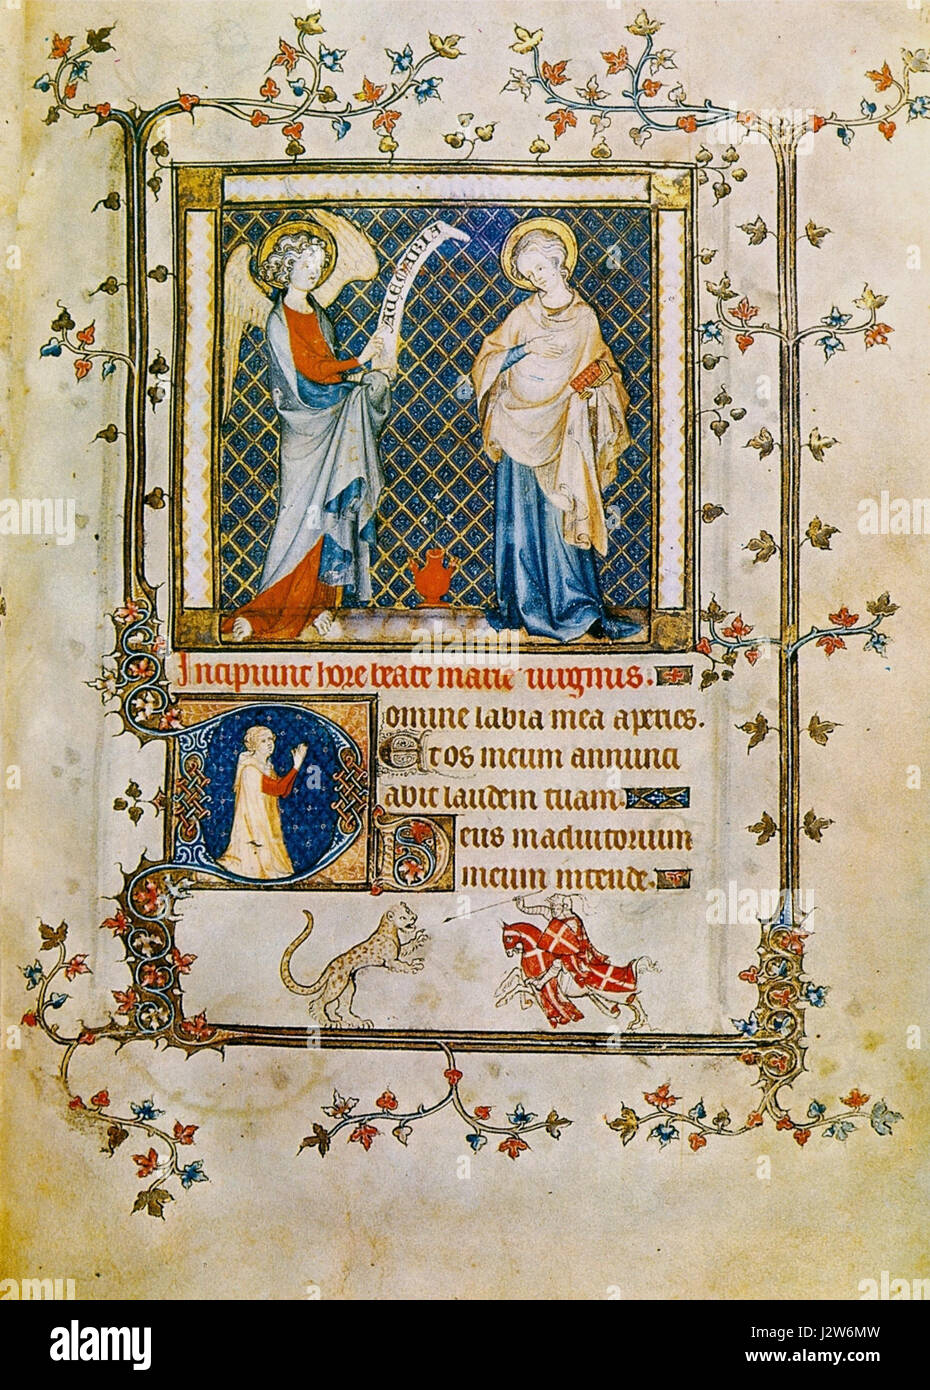 AVE MARIA
Incipiunt hore beate marie virginis.
Domine labia mea aperies.
Et os meum annunci
abit laudem tuam.
Deus in adiutorium
meum intende.
alamy
alamy stock photo
2W6MW
www.alamy.com